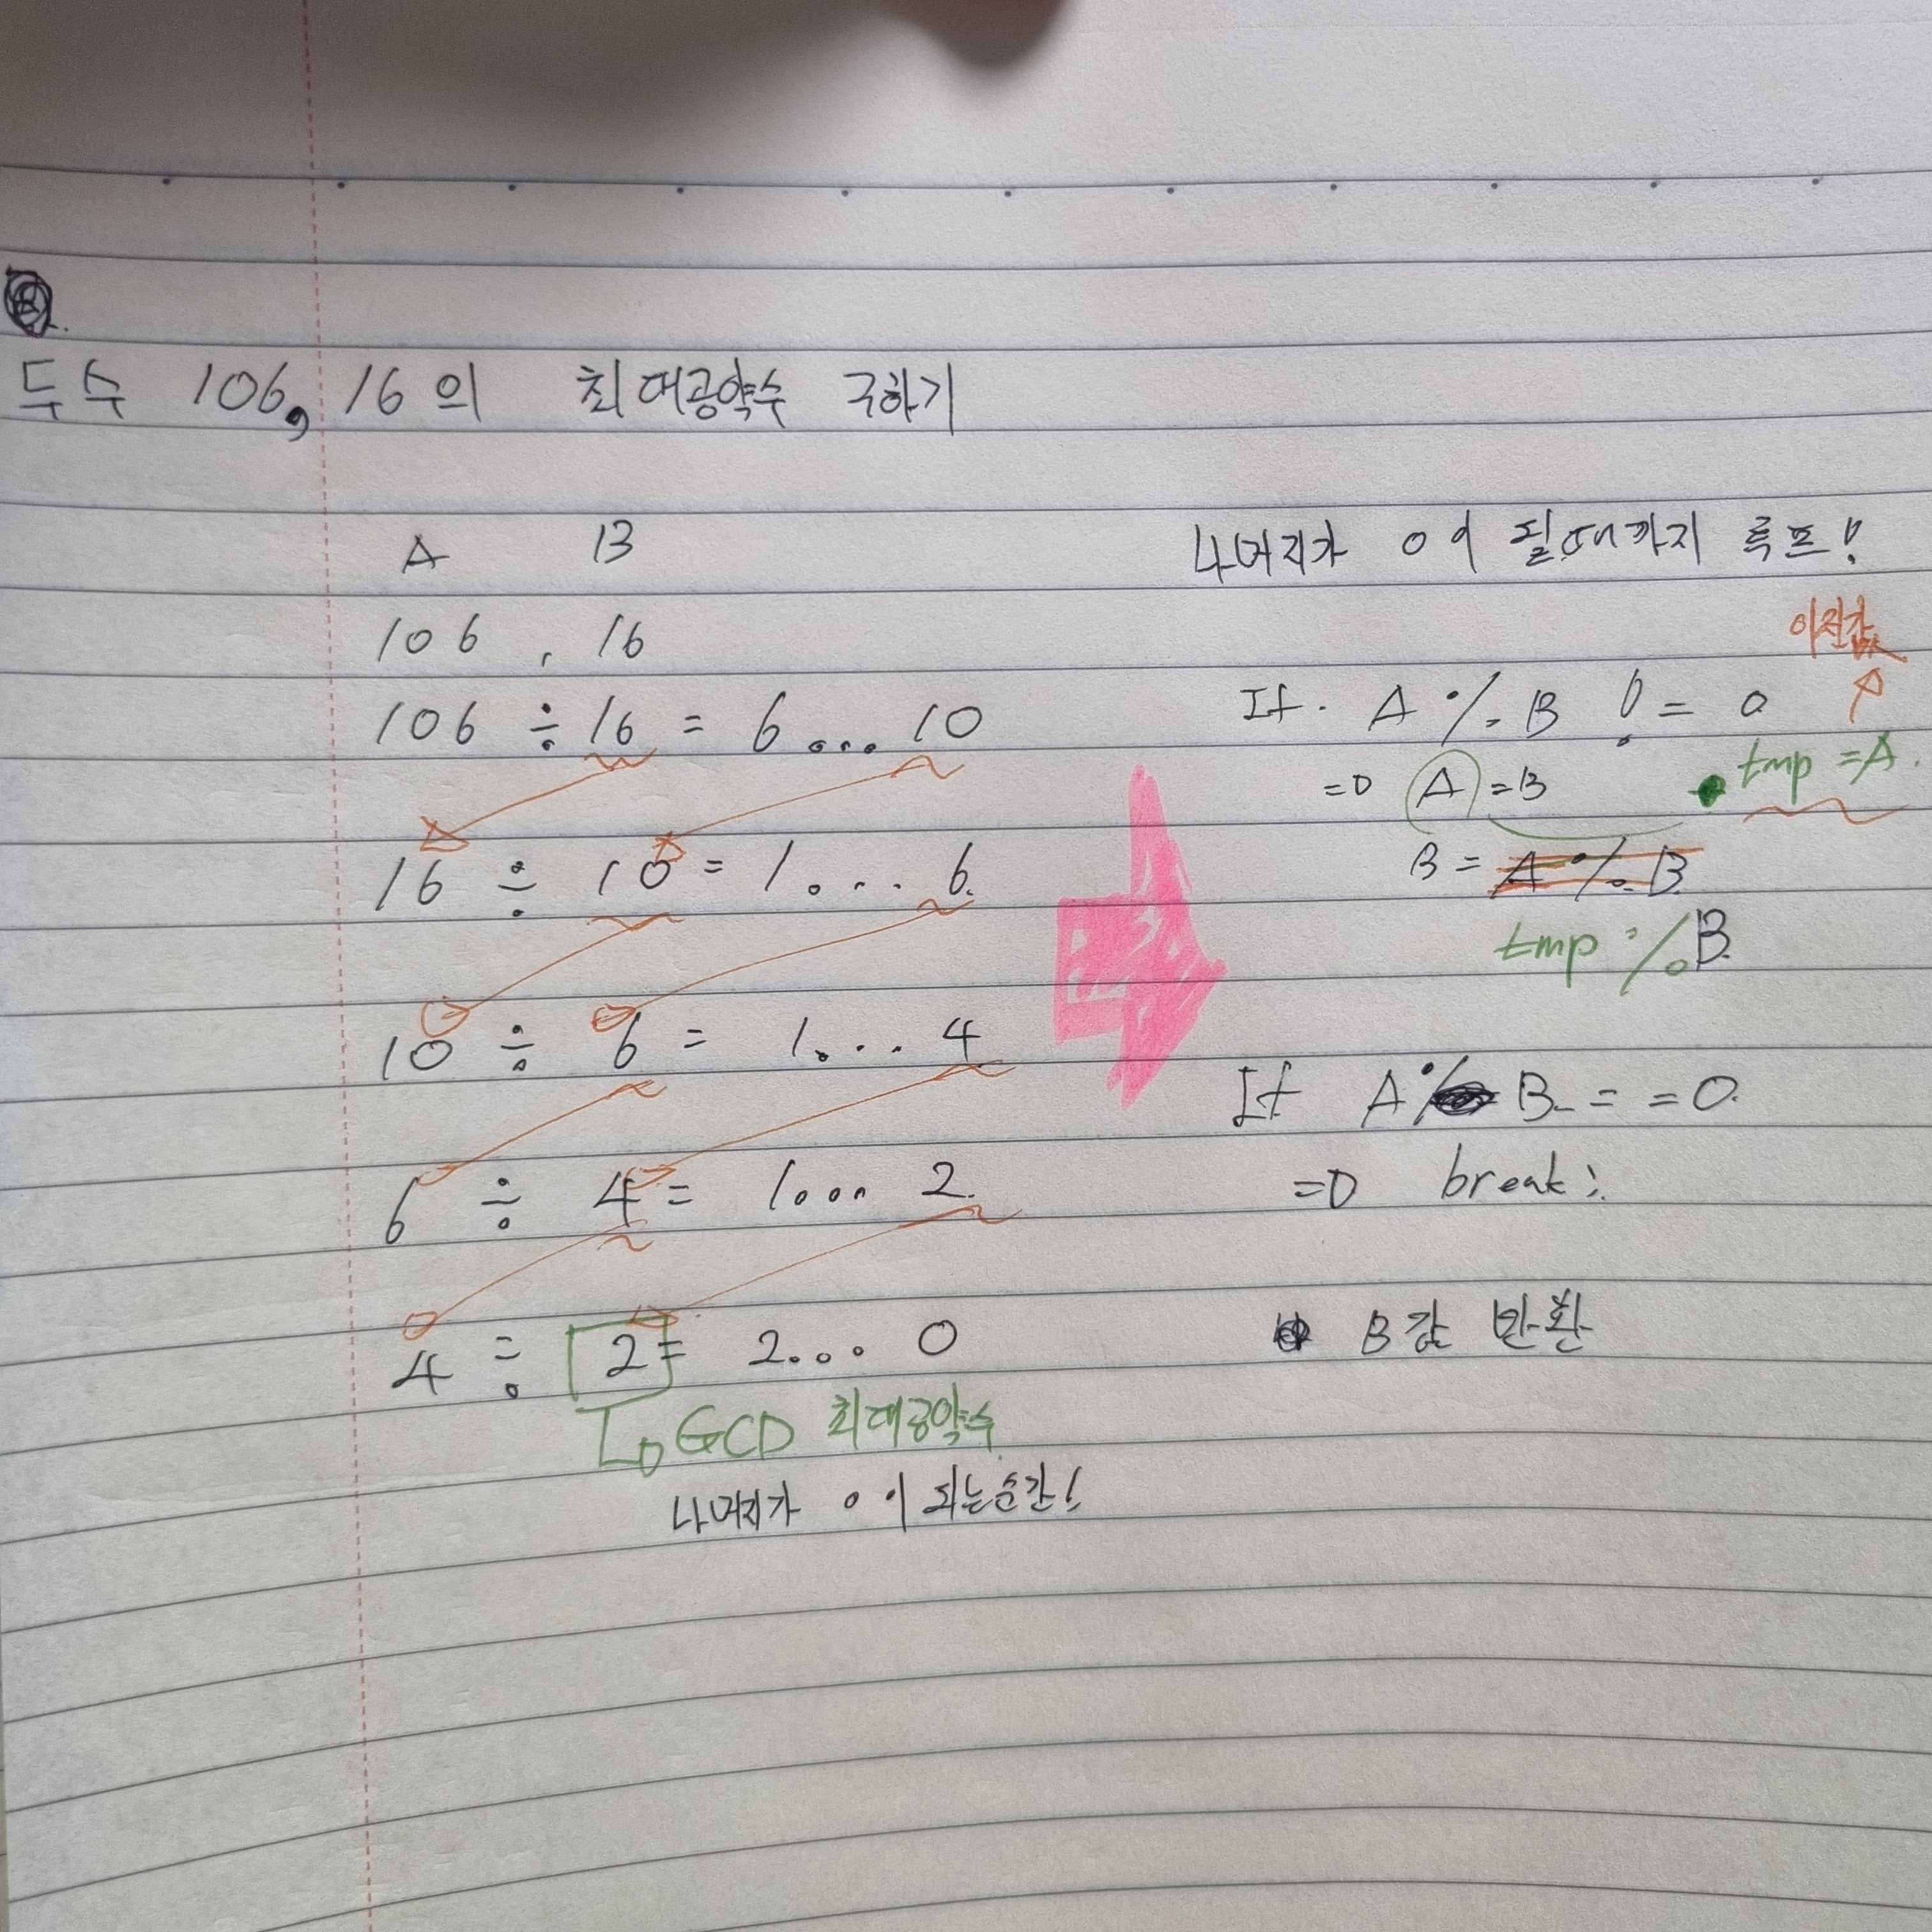 두수 106, 16의 최대공약수 구하기
A B
106 , 16
106 ÷ 16 = 6 ... 10
16 ÷ 10 = 1 ... 6.
10 ÷ 6 = 1 ... 4
6 ÷ 4 = 1 ... 2.
4 ÷ 2 = 2 ... 0
GCD 최대공약수
나머지가 0이 되는순간!
나머지가 0이 될때까지 루프!
이전값
If. A % B != 0
tmp = A.
⇒ A = B
B = A % B
tmp % B.
If A % B == 0.
⇒ break;
B값 반환